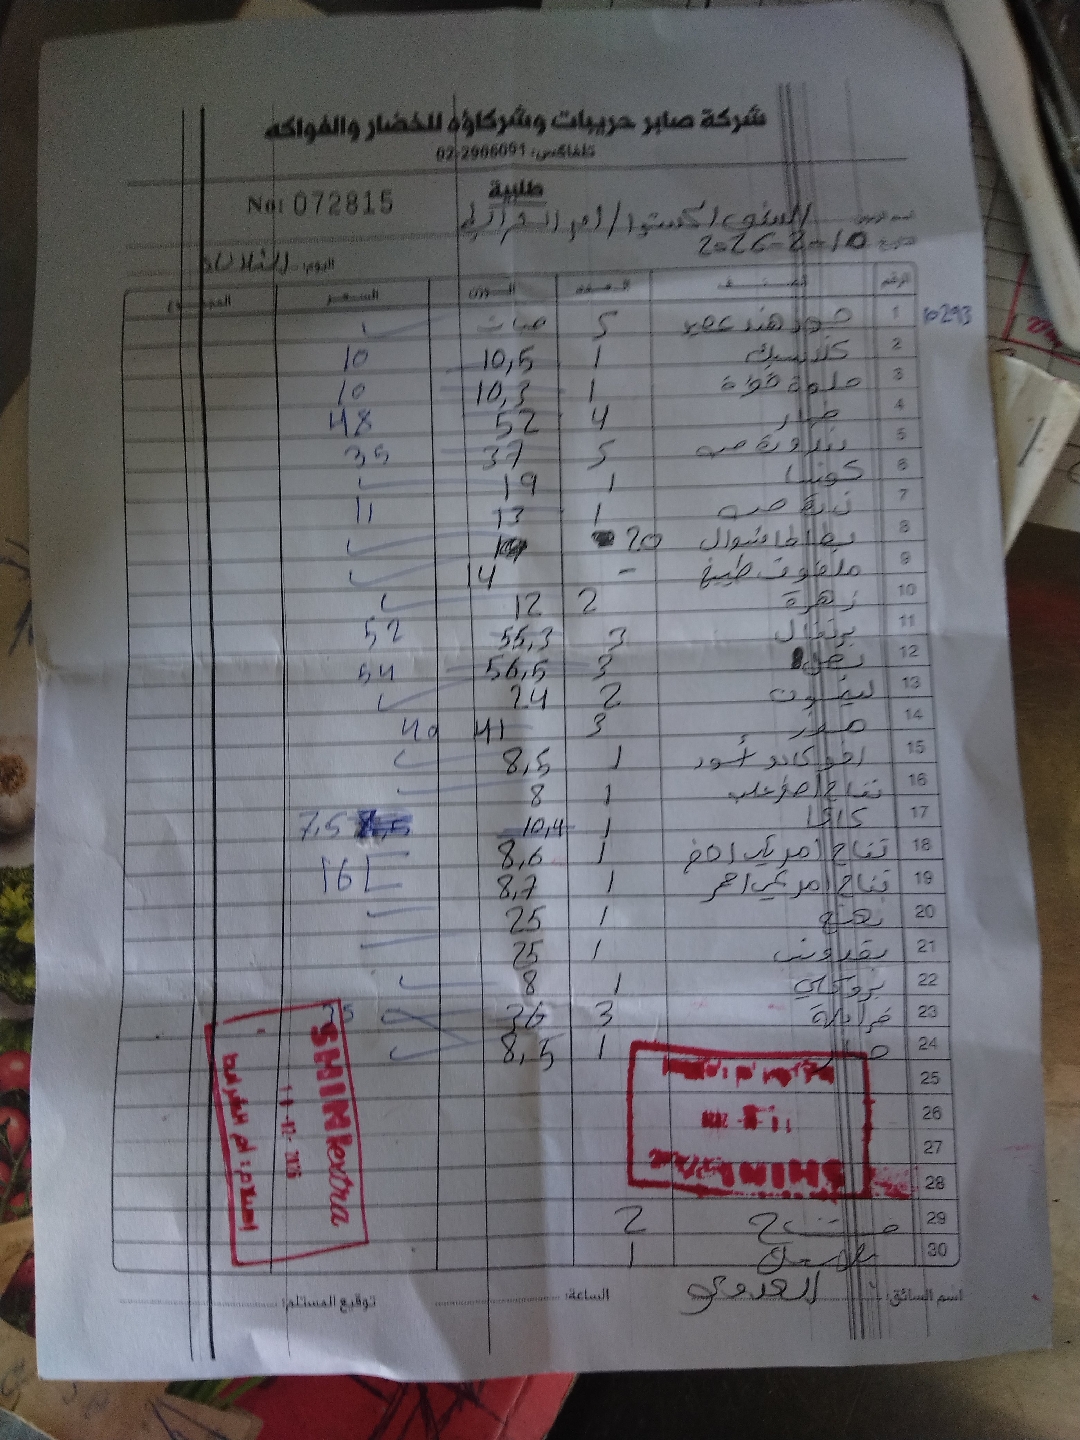 شركة صابر حريبات وشركاؤه للخضار والفواكه
تلفاكس: 02-2966091
طلبية
No: 072815
2026-2-10
اليوم: الثلاثاء
الرقم الصنف العدد الوزن السعر المجموع
1 جوز هند عصير 5 حبات
10293
2 1 10,5 10
3 1 10,3 10
4 خيار 4 52 48
5 بندورة حب 5 37 35
6 كوسا 1 19
7 1 13 11
8 بطاطا شوال 20
9 ملفوف طبيخ - 14
10 زهرة 2 12
11 برتقال 3 55,3 52
12 بصل 3 56,5 54
13 ليمون 2 24
14 موز 3 41 40
15 افوكادو أسود 1 8,5
16 تفاح اصفر علب 1 8
17 كاكا 1 10,4 7,5
18 تفاح امريكي اخضر 1 8,6
19 تفاح امريكي احمر 1 8,7 16
20 نعنع 1 25
21 بقدونس 1 25
22 بروكلي 1 8
23 فراولة 3 26
24 1 8,5
25
26
27
28
29 2
30 1
SHINI extra
اسم السائق:
الساعة:
توقيع المستلم: